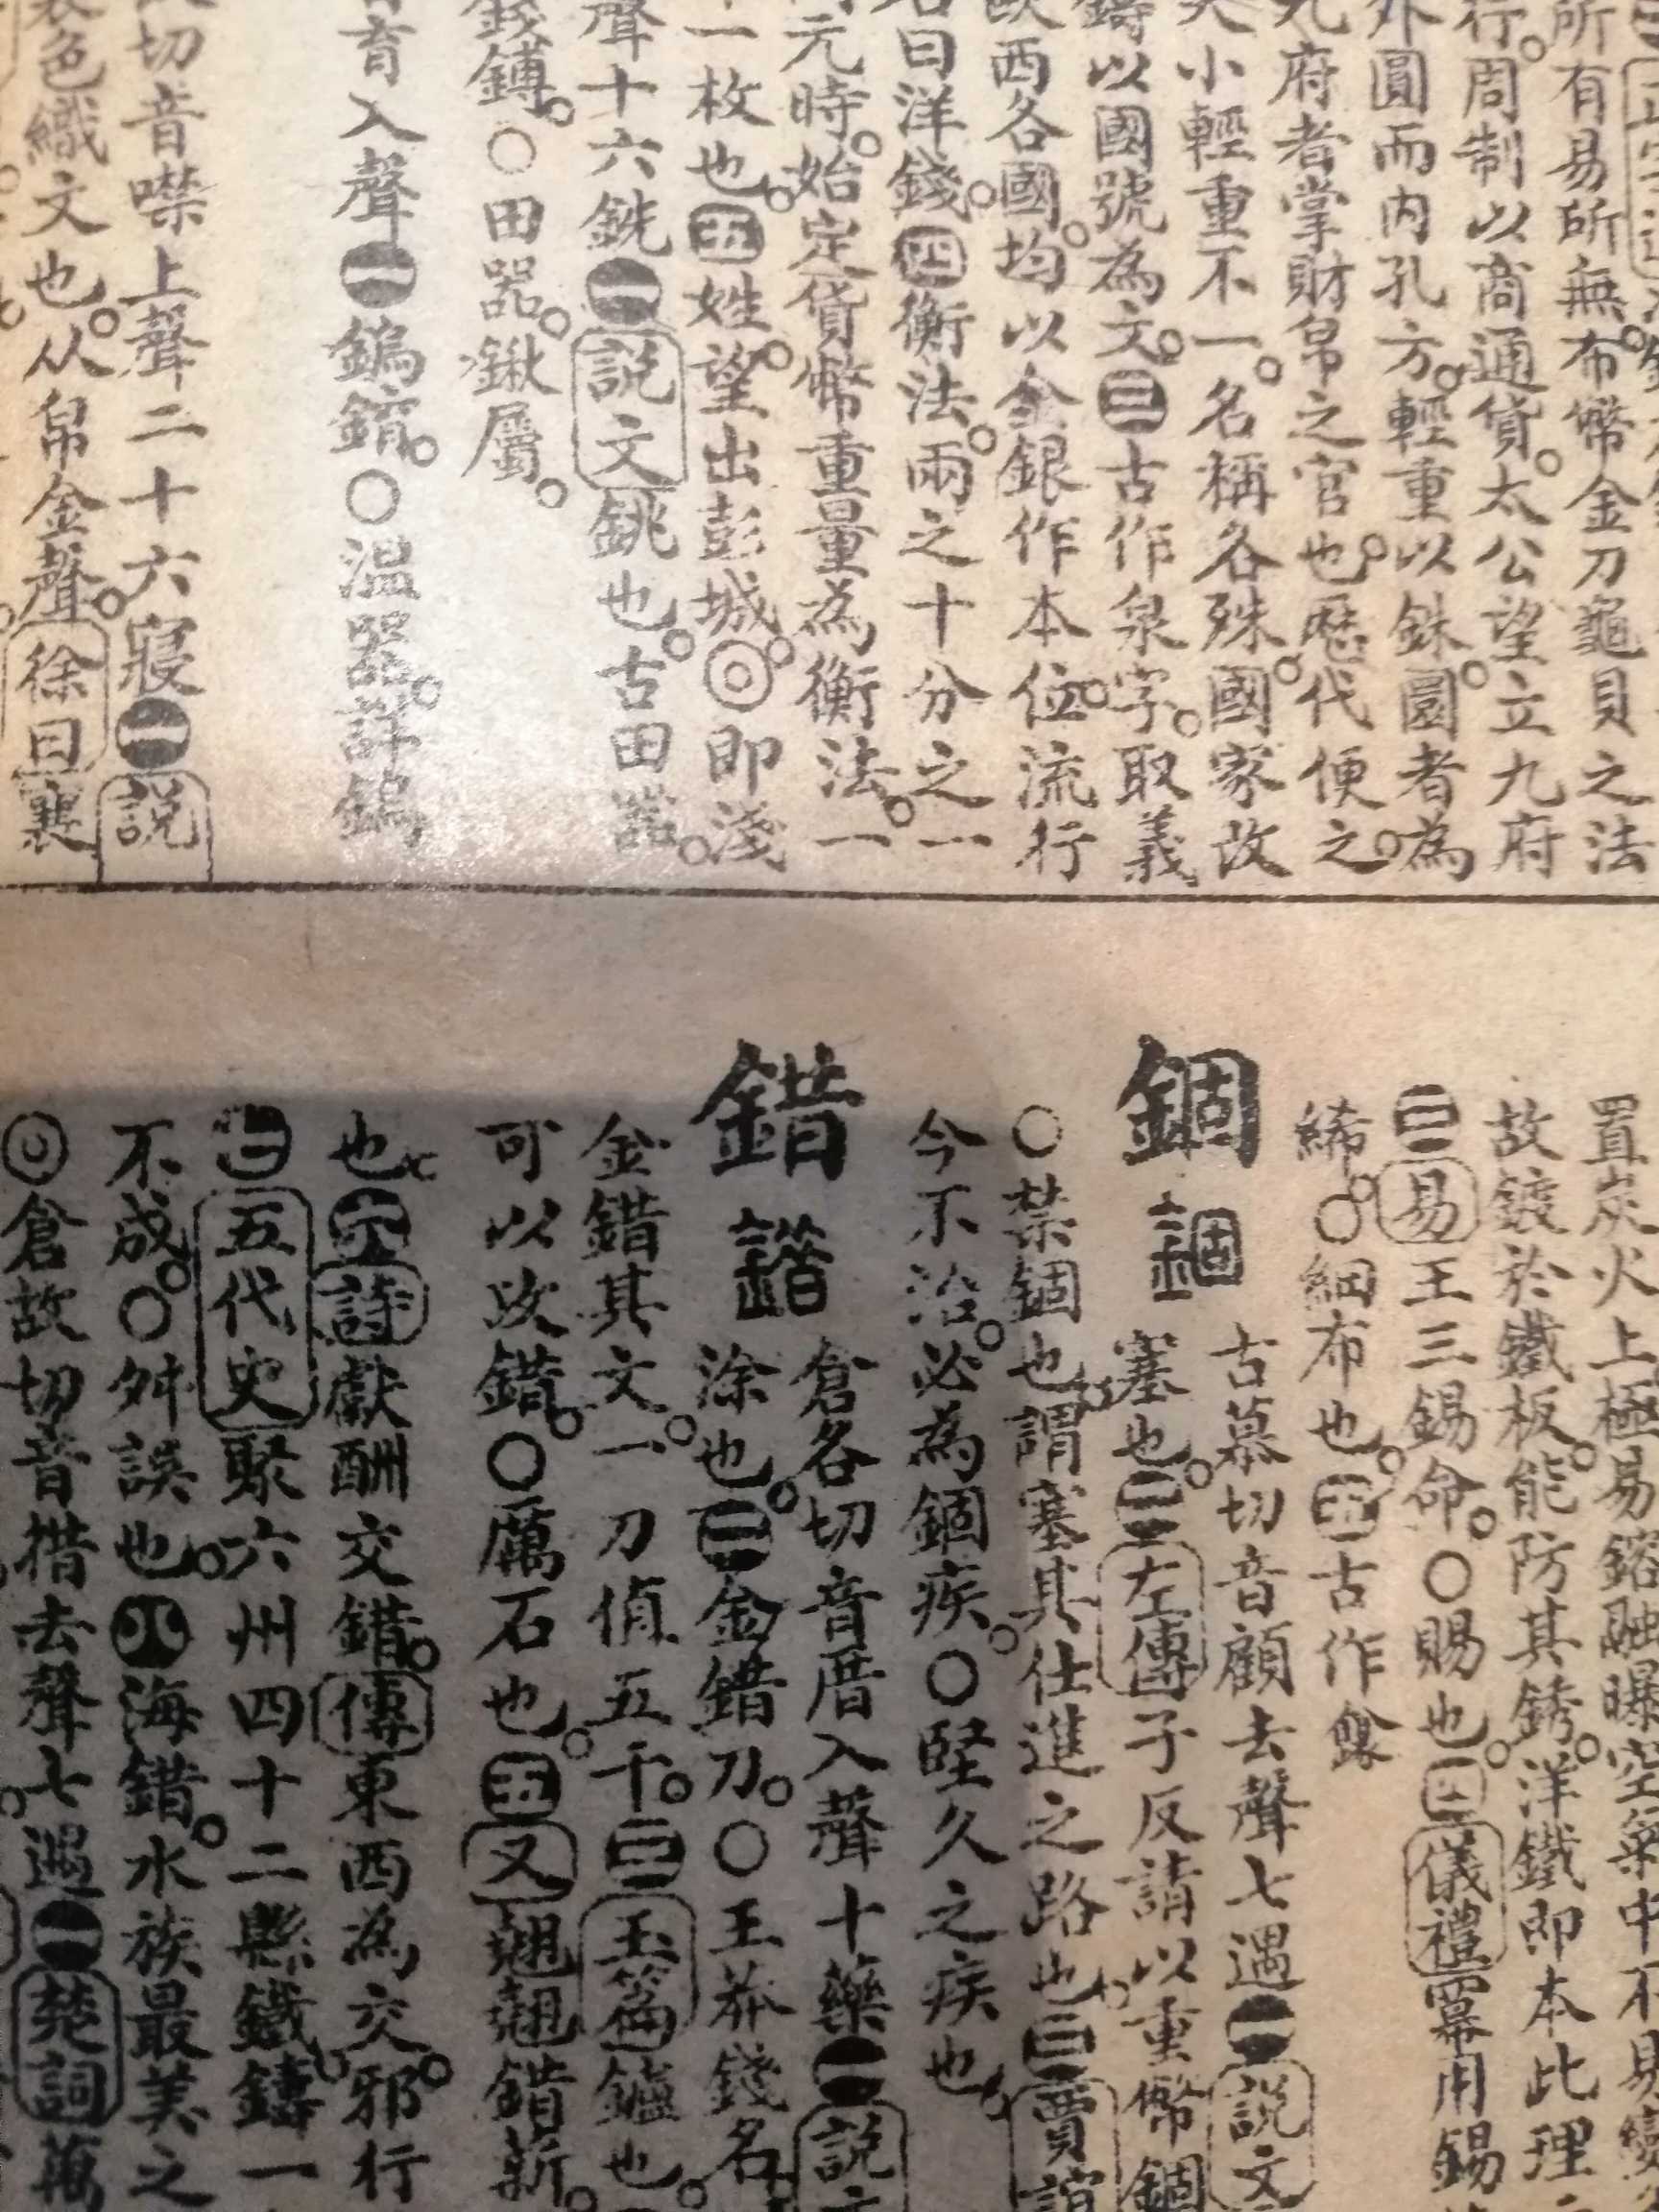 所有易所無布幣金刀龜貝之法
行。周制以商通貨。太公望立九府
外圓而內孔方。輕重以銖。圜者為
九府者掌財帛之官也。歷代便之。
大小輕重不一。名稱各殊。國家改
鑄以國號為文。三古作泉字。取義
歐西各國。均以金銀作本位。流行
名曰洋錢。四衡法。兩之十分之一
元時。始定貨幣重量為衡法。一
一枚也。五姓。望出彭城。◎即淺
聲十六銑一說文銚也。古田器。
錢鎛。○田器。鍬屬。
育入聲一鎢錥。○溫器。詳鎢
切音噤上聲二十六寢一說
色織文也。从帛金聲。徐曰襄
置炭火上極易鎔融曝空氣中不易變
故鍍於鐵板。能防其銹。洋鐵即本此理
三易王三錫命。○賜也。四儀禮冪用錫
絺。○細布也。五古作
錮 錮
古慕切音顧去聲七遇一說文
塞也。二左傳子反請以重幣錮
○禁錮也謂塞其仕進之路也三賈誼
今不治。必為錮疾。○堅久之疾也
錯 錯
倉各切音厝入聲十藥一說
涂也。二金錯刀。○王莽錢名。
金錯其文。一刀值五千。三玉篇鑢也。
可以攻錯。○厲石也。五又翹翹錯薪。
也六詩獻酬交錯。傳東西為交。邪行
五代史聚六州四十二縣鐵鑄一
不成。○舛誤也。八海錯。水族最美之
◎倉故切音措去聲七遇一楚詞萬